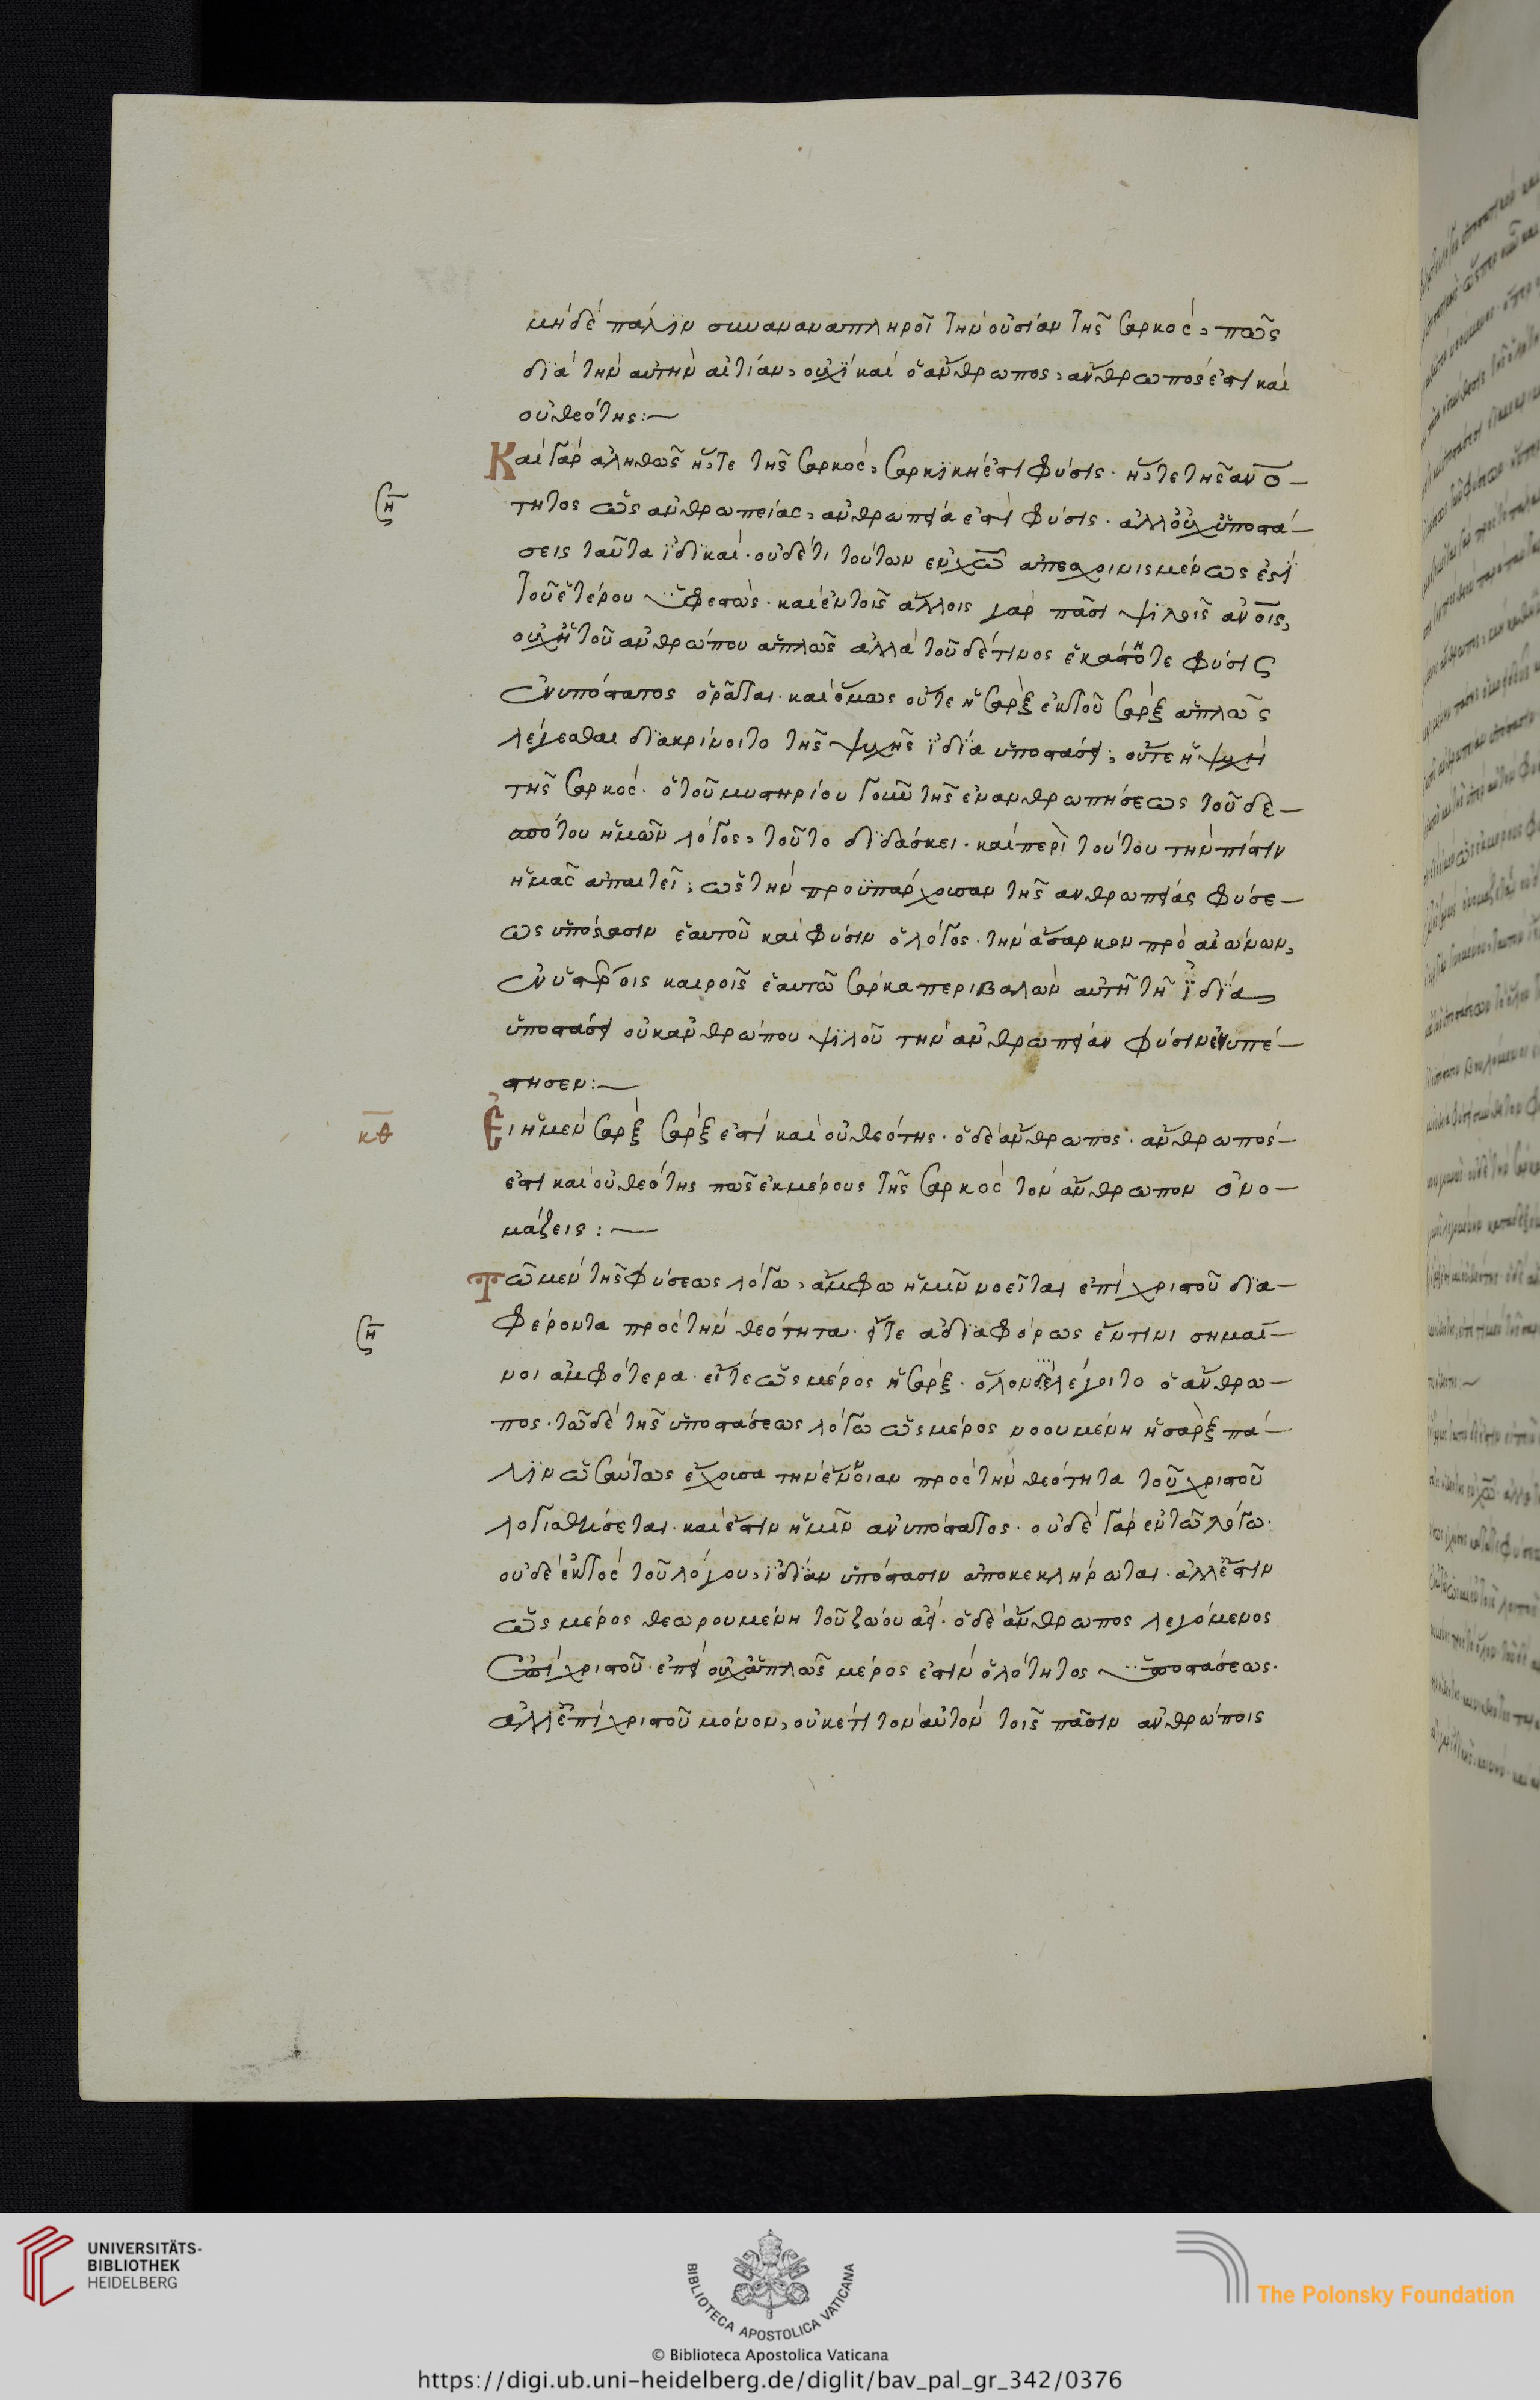 μηδὲ πάλϊν συναναναπληροῖ τὴν οὐσίαν τῆς σαρκὸς, πῶς
δϊὰ τὴν αὐτὴν αἰτίαν, οὐχϊ καὶ ὁ ἄνθρωπος, ἄνθρωπός ἐστι καὶ
οὐ θεότης:—
Καὶ γὰρ ἀληθῶς ἥ, τε τῆς σαρκὸς, σαρκϊκή ἐστι φύσις. ἥ, τε τῆς ἀνο—
τητος ὡς ἀνθρωπείας, ἀνθρωπεία ἐστὶ φύσις. ἀλλ' οὐχ ὑποστά—
σεις ταῦτα ἰδϊκαὶ. οὐδέτι τούτων ἐν χῶ ἀποκρινισμένως ἐστὶ
τοῦ ἑτέρου ὑφεστὼς. καὶ ἐν τοῖς ἄλλοις γὰρ πᾶσι ψϊλοῖς ἀνοις,
οὐχ ἡ τοῦ ἀνθρώπου ἁπλῶς ἀλλὰ τοῦδέ τινος ἑκάστοτε φύσις
ἐνυπόστατος ὁρᾶται. καὶ ὅμως οὔτε ἡ σὰρξ ἐκ τοῦ σὰρξ ἁπλῶς
λέγεσθαι δϊακρίνοιτο τῆς ψυχῆς ἰδία ὑποστάσει, οὔτε ἡ ψυχὴ
τῆς σαρκὸς. ὁ τοῦ μυστηρίου γοῦν τῆς ἐνανθρωπήσεως τοῦ δε—
σπότου ἡμῶν λόγος, τοῦτο δϊδάσκει. καὶ περὶ τούτου τὴν πίστιν
ἡμᾶς ἀπαιτεῖ, ὡς τὴν προϋπάρχουσαν τῆς ἀνθρωπείας φύσε—
ως ὑπόστασιν ἑαυτοῦ καὶ φύσιν ὁ λόγος. τὴν ἄσαρκον πρὸ αἰώνων,
ἐν ὑστέροις καιροῖς ἑαυτῶ σάρκα περιβαλὼν αὐτῆ τῆ ϊδϊα
ὑποστάσει οὐκ ἀνθρώπου ψϊλοῦ τὴν ἀνθρωπείαν φύσιν ἐνυπέ—
στησεν:—
κθ
Εἰ ἡ μὲν σὰρξ σὰρξ ἐστὶ καὶ οὐ θεότης. ὁ δὲ ἄνθρωπος. ἄνθρωπός—
ἐστι καὶ οὐ θεότης πῶς ἐκ μέρους τῆς σαρκὸς τὸν ἄνθρωπον ὀνο—
μάζεις:—
Τῶ μὲν τῆς φύσεως λόγω, ἄμφω ἡμῖν νοεῖται ἐπὶ χριστοῦ δϊα—
φέροντα πρὸς τὴν θεότητα. εἴτε ἀδϊαφόρως ἕν τινι σημαί—
νοι ἀμφότερα. εἴτε ὡς μέρος ἡ σὰρξ. ὅλον δὲ λέγοιτο ὁ ἄνθρω—
πος. τῶ δὲ τῆς ὑποστάσεως λόγω ὡς μέρος νοουμένη ἡ σὰρξ πά—
λϊν ὡσαύτως ἔχουσα τὴν ἔννοιαν πρὸς τὴν θεότητα τοῦ χριστοῦ
λογισθήσεται. καὶ ἔστιν ἡμῖν ἀνυπόστατος. οὐδὲ γὰρ ἐν τῶ λόγω.
οὐδὲ ἐκτὸς τοῦ λόγου, ἰδϊαν ὑπόστασιν ἀποκεκλήρωται. ἀλλ' ἔστιν
ὡς μέρος θεωρουμένη τοῦ ζώου ἀεὶ. ὁ δὲ ἄνθρωπος λεγόμενος
ἐπὶ χριστοῦ. ἐπεὶ οὐχ ἁπλῶς μέρος ἐστὶν ὁλότητος ὑποστάσεως.
ἀλλ' ἐπὶ χριστοῦ μόνον, οὐκέτι τὸν αὐτὸν τοῖς πᾶσιν ἀνθρώποις
UNIVERSITÄTS-
BIBLIOTHEK
HEIDELBERG
BIBLIOTECA APOSTOLICA VATICANA
The Polonsky Foundation
© Biblioteca Apostolica Vaticana
https://digi.ub.uni-heidelberg.de/diglit/bav_pal_gr_342/0376